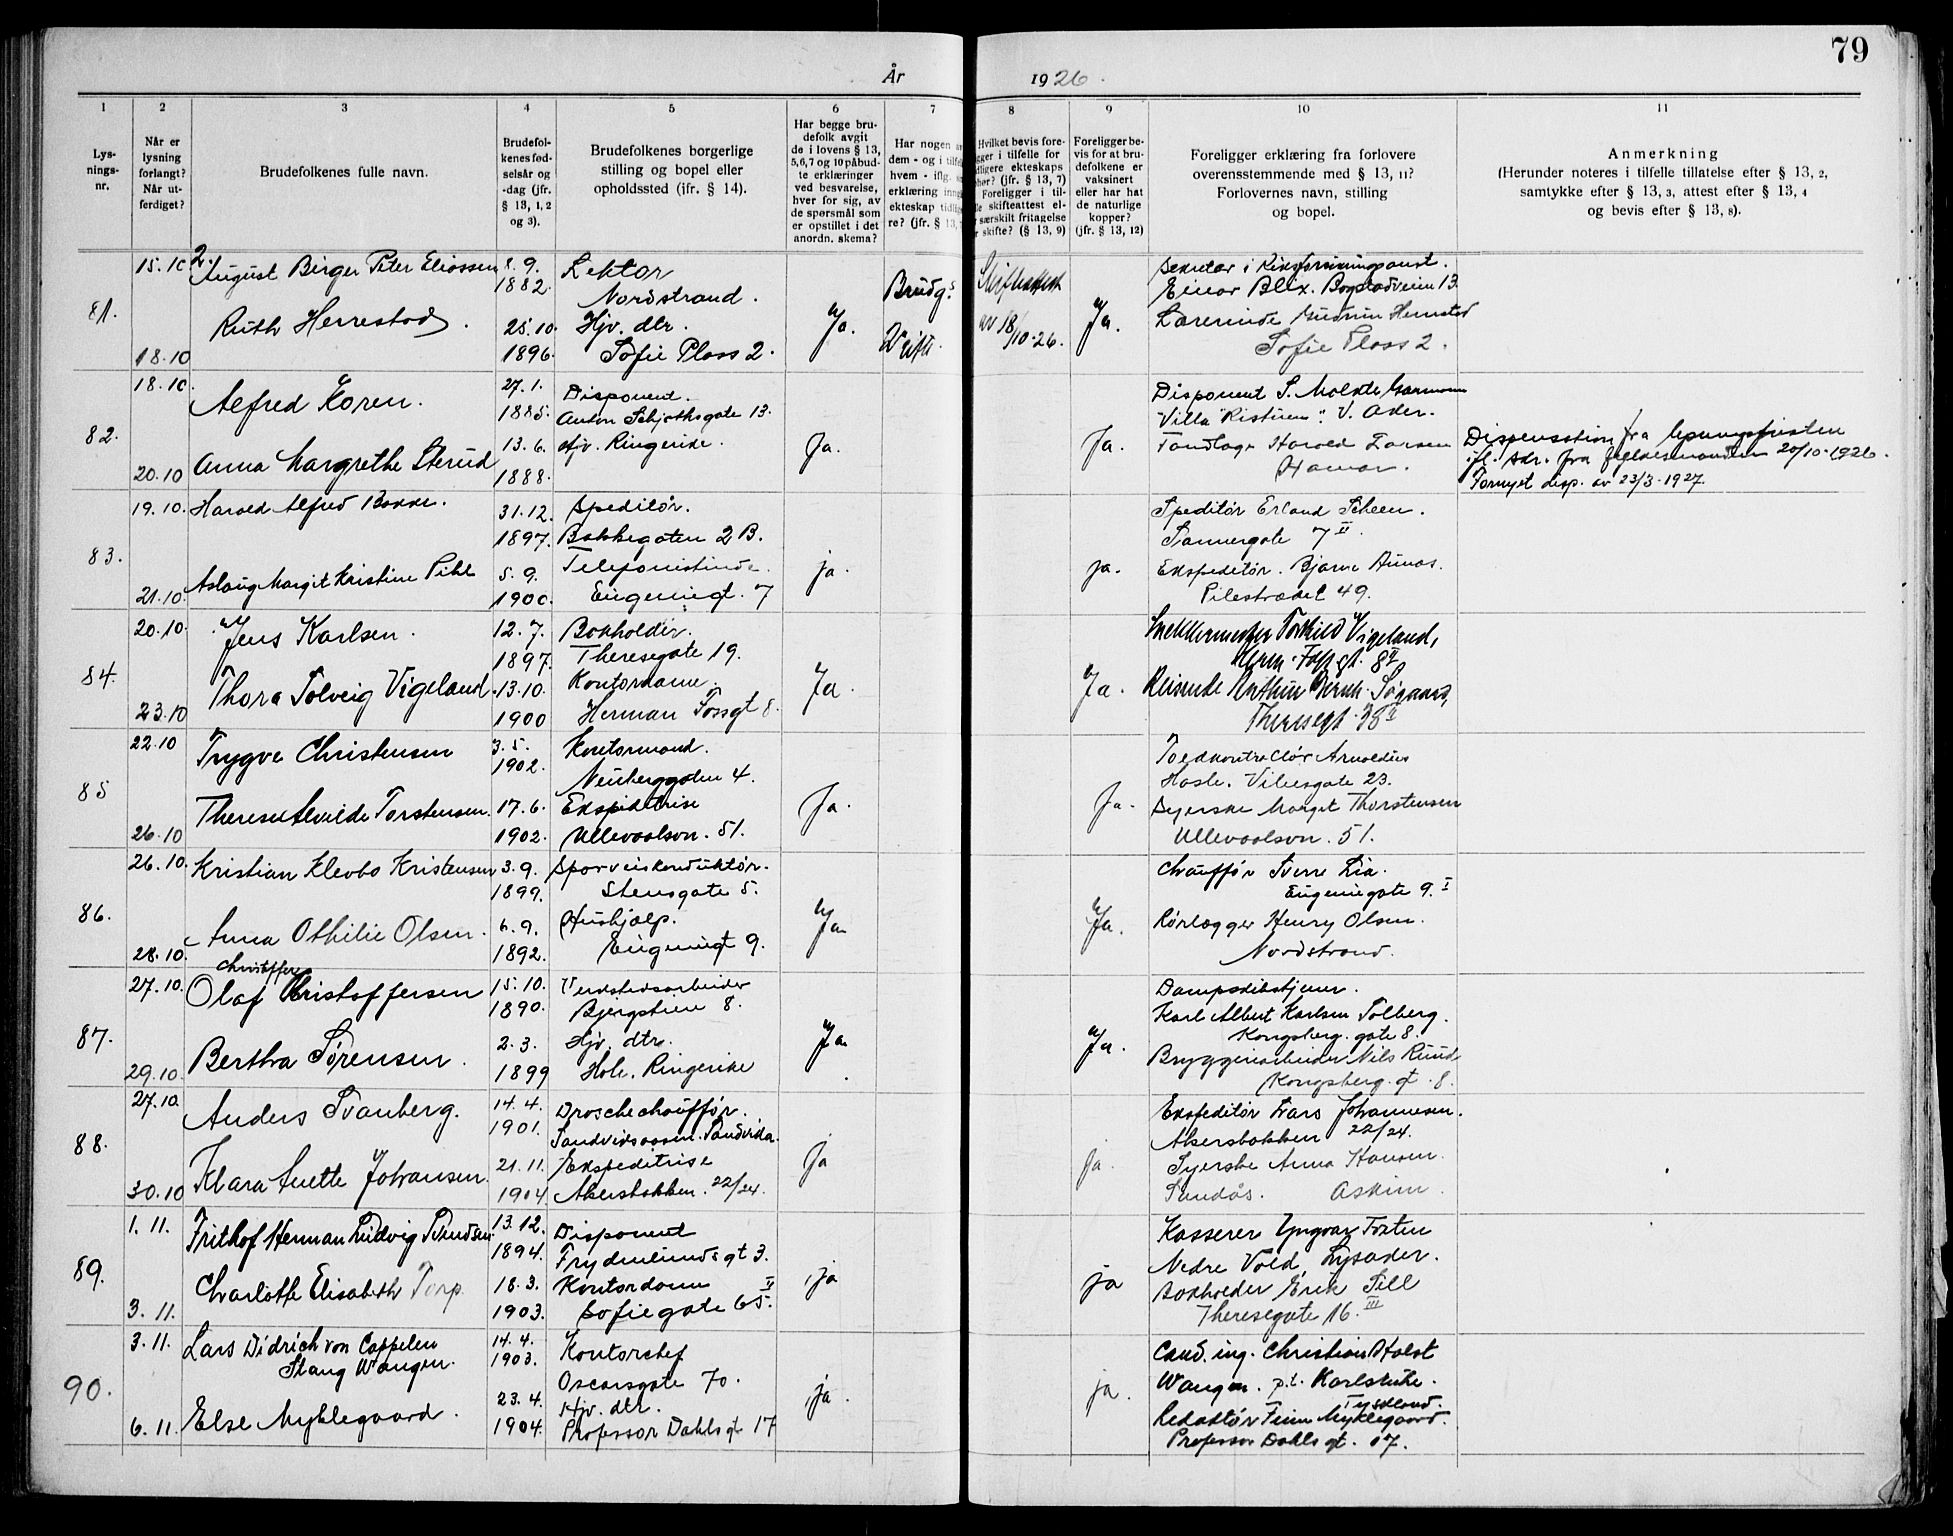 79
År 1926.
1 2 3 4 5 6 7 8 9 10 11
Lys-
nings-
nr.
Når er
lysning
forlangt?
Når ut-
ferdiget?
Brudefolkenes fulle navn.
Brudefol-
kenes fød-
selsår og
-dag (jfr.
§ 13, 1, 2
og 3).
Brudefolkenes borgerlige
stilling og bopel eller
opholdssted (jfr. § 14).
Har begge bru-
defolk avgit
de i lovens § 13,
5,6,7 og 10 påbud-
te erklæringer
ved besvarelse,
hver for sig, av
de spørsmål som
er opstillet i det
anordn. skema?
Har nogen
dem - og i
hvem - iflg.
erklæring
ekteskap
re? (jfr. § 13,
Hvilket bevis fore-
i tilfelle for
ekteskaps
(jfr. § 13, 7)
Foreligger i til-
skifteattest el-
særskilt fritagelse
skifte? (§ 13, 9)
Foreligger be-
vis for at bru-
defolkene er
vaksinert
eller har hat
de naturlige
kopper?
(jfr. § 13, 12)
Foreligger erklæring fra forlovere
overensstemmende med § 13, 11?
Forlovernes navn, stilling
og bopel.
Anmerkning
(Herunder noteres i tilfelle tillatelse efter § 13, 2,
samtykke efter § 13, 3, attest efter § 13, 4
og bevis efter § 13, 8).
81.
15.10
18.10
2.
August Birger Peter Eliassen
Ruth Herrestad.
8.9.
1882.
25.10.
1896.
Lektor
Nordstrand.
Hjv. dtr.
Sofie Plass 2.
Ja.
Brudg.s
Skifteattest
av 18/10-26.
Ja.
Sekretær i
Einar Blix. Bogstadveien 13
Lærerinde Gudrun
Sofie Plass 2.
82.
18.10.
20.10
Alfred Koren.
Anna Margrethe Sterud
27.1.
1885.
13.6.
1888.
Disponent.
Anton Schjøthsgate 13.
Hjv. Ringerike.
Ja.
Ja.
Disponent S. Molkte
Villa V. Aker.
Tandlæge Harald Larsen
Hamar.
Dispensation fra lysningsfristen
ifl. skr. fra fylkesmanden 20/10-1926.
Fornyet disp. av 23/3-1927
83.
19.10.
21.10.
Harald Alfred Bakke.
Aslaug Margit Kristine Pihl
31.12.
1897.
5.9.
1900.
Speditør.
Bakkegaten 2 B.
Telefonistinde.
Eugeniegt. 7
ja.
ja.
Speditør Erland Scheen.
Sannergate 7 II.
Ekspeditør. Bjarne Aunas.
Pilestrædet 49.
84.
20.10.
23.10
Jens Karlsen.
Thora Solveig Vigeland.
12.7.
1897.
13.10.
1900
Bokholder.
Theresegate 19.
Kontordame.
Herman Fossgt 8.
Ja.
Ja.
Snekkermester Torkild Vigeland,
Herm. Foss gt. 8
Reisende Arthur
Theresegt.
85
22.10
26.10
Trygve Christensen
Therese Alvilde Torstensen.
3.5.
1902.
17.6.
1902.
Kontormand.
Neuberggaten 4.
Ekspeditrise
Ullevaalsvn. 51.
Ja.
Ja.
Toldkontrollør Arnoldus
Hasle. Vibesgate 23.
Syerske Margit Thorstensen
Ullevaalsvn. 51.
86.
26.10.
28.10.
Kristian Klevbo Kristensen
Anna Othilie Olsen.
3.9.
1899.
6.9.
1892.
Sporveiskonduktør.
Stensgate 5.
Hushjælp.
Eugeniegt 9.
Ja.
Ja.
Chauffør Sverre Lia.
Eugeniegate 9. I
Rørlægger Henry Olsen.
Nordstrand.
87.
27.10.
29.10.
Christoffer
Olaf Kristoffersen
Bertha Sørensen.
15.10.
1890.
2.3.
1899
Verkstedsarbeider
Bjergstien 8.
Hjv. dtr.
Hole. Ringerike
Ja.
Ja.
Dampskibstjener.
Karl Albert Karlsen Solberg.
Kongsberg. gate 8.
Bryggeriarbeider Nils Ruud
Kongsberg. gt. 8.
88.
27.10.
30.10
Anders Svanberg.
Klara Anette Johansen.
14.4.
1901.
21.11.
1904
Droschechauffør.
Sandvika.
Ekspeditrise
Akersbakken. 22/24.
ja
ja.
Ekspeditør Lars Johannesen.
Akersbakken 22/24.
Syerske Anna Hansen.
Askim.
89.
1.11.
3.11.
Frithof Herman Ludvig Svendsen.
Charlotte Elisabeth Torp.
13.12.
1894.
18.3.
1903.
Disponent
Frydenlunds gt 3.
Kontordame
Sofiegate 65.
ja
ja
Kasserer Yngvar Tosten
Nedre Vold, Lysaker.
Bokholder Erik Sill
Theresegate 16. III
90.
3.11.
6.11.
Lars Didrich von Cappelen
Stang Wangen.
Else Myklegaard.
14.4.
1903.
23.4.
1904.
Kontorchef
Oscarsgate 70.
Hjv. dtr.
Professor Dahls gt 17
ja.
ja.
Cand. ing. Christian Holst
Wangen. p.t. Karlsruhe.
Tyskland.
Redaktør Finn Myklegaard.
Professor Dahls gt. 17.